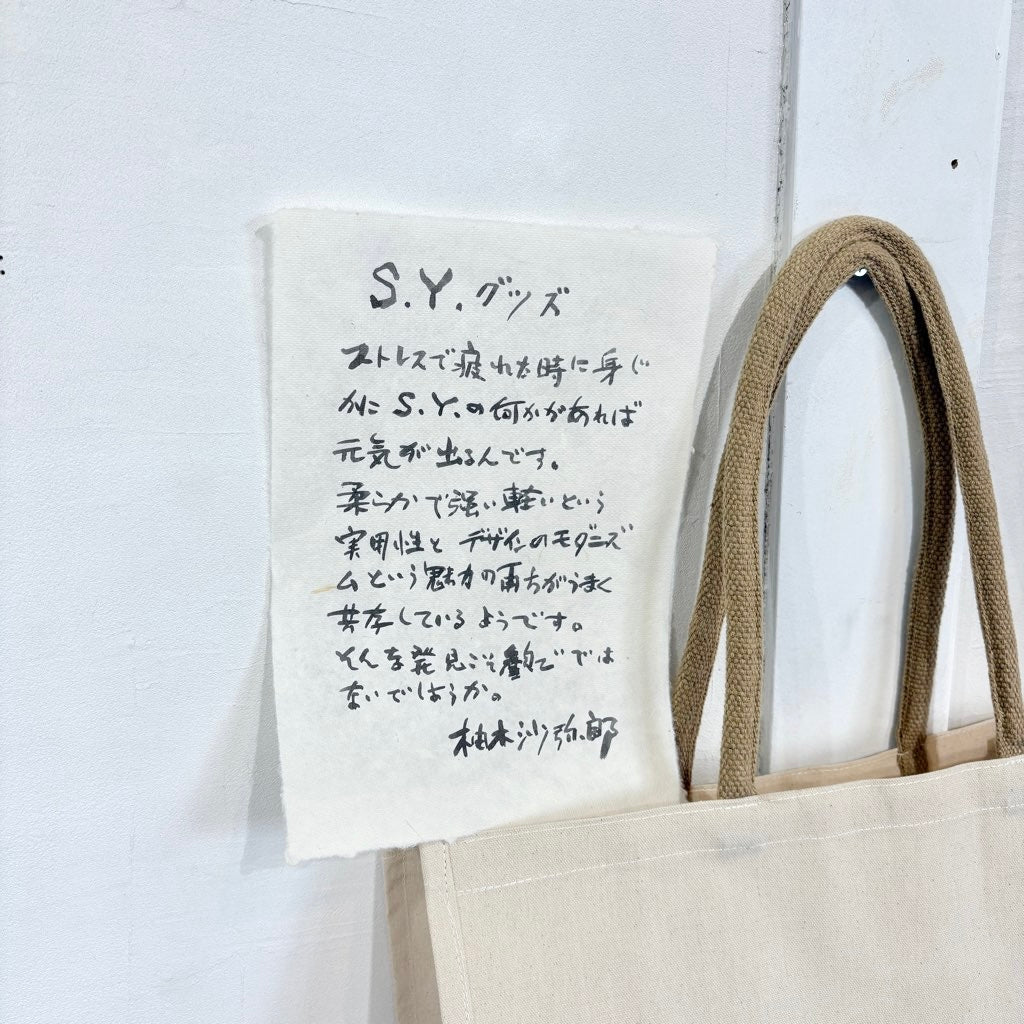 S.Y.グッズ
ストレスで疲れた時に身じ
かに S.Y.の何かがあれば
元気が出るんです。
柔らかで強い軽いという
実用性と デザインのモダニズ
ムという魅力の両方がうまく
共存しているようです。
そんな発見こそ感動ではないでしょうか。
柚木沙弥郎